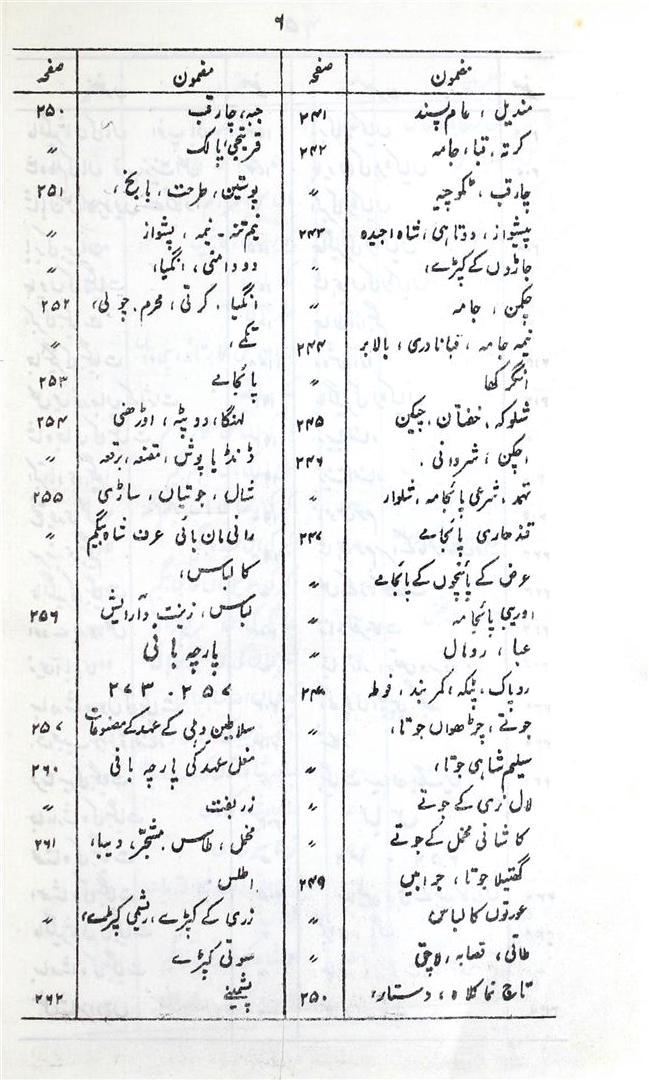 ۹
مضمون صفحہ
مندیل ، عام پسند ۲۴۱
کرتہ، قبا، جامہ ۲۴۲
چارقب ، ٹکوچیہ ”
پیشواز ، دوتاہی، شاہ اجیدہ ۲۴۳
جاڑوں کے کپڑے، ”
چکمن ، جامہ ”
نیمہ جامہ ، قبا نادری، بالابر ۲۴۴
انگرکھا ”
شلوکہ، خفتان، چپکن ۲۴۵
اچکن ، شیروانی ۔ ۲۴۶
تہمد، شرعی پائجامہ، شلوار ”
قندھاری پائجامے ۲۴۷
عرض کے پائنچوں کے پائجامے ”
اوریبی پائجامہ ”
عبا ، رومال ”
روپاک، پٹکہ، کمربند، فوطہ ۲۴۸
جوتے، چڑھواں جوتا، ”
سلیم شاہی جوتا، ”
لال نری کے جوتے ”
کاشانی مخمل کے جوتے ”
گھتیلا جوتا ، جرابیں ۲۴۹
عورتوں کا لباس ”
طاقی، قصابہ، لاچق ”
تاج نما کلاہ ، دستار، ۲۵۰
مضمون صفحہ
جبہ، چارقب ۲۵۰
فریجی، پالک ”
پوستین، طرحت، ۲۵۱
نیم تنہ ۔ نیمہ ، پشواز ”
دودامنی، انگیا، ”
انگیا ۔ کرتی، محرم، چولی، ۲۵۲
تکمے، ”
پائجامے ۲۵۳
لہنگا، دوپٹہ ، اوڑھنی ۲۵۴
ڈنڈیا پوش، مقنعہ، برقعہ ”
شال، جوتیاں، ساڑی ۲۵۵
رانی مان بائی عرف شاہ بیگم ”
کا لباس،
لباس، زینت و آرایش ۲۵۶
پارچہ بافی
۲۵۷ ۔ ۲۷۳
سلاطین دہلی کے عہد کے مصنوعات ۲۵۷
مغل عہد کی پارچہ بافی ۲۶۰
زربفت ”
مخمل، طاس، مشجّر، دیبا، ۲۶۱
اطلس
زری کے کپڑے، ریشمی کپڑے، ”
سوتی کپڑے
پشمینے ۲۶۲